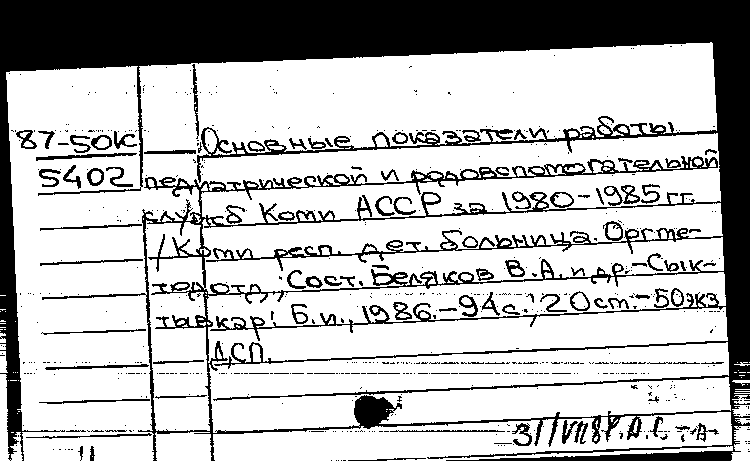 87-50к
5402
Основные показатели работы
педиатрической и родовспомогательной
служб Коми АССР за 1980-1985 гг.
/ Коми респ. дет. больница. Оргме-
тодотд.; Сост. Беляков В.А. и др.-Сык-
тывкар: Б.и., 1986.-94с.; 20 см.-50экз.
ДСП.